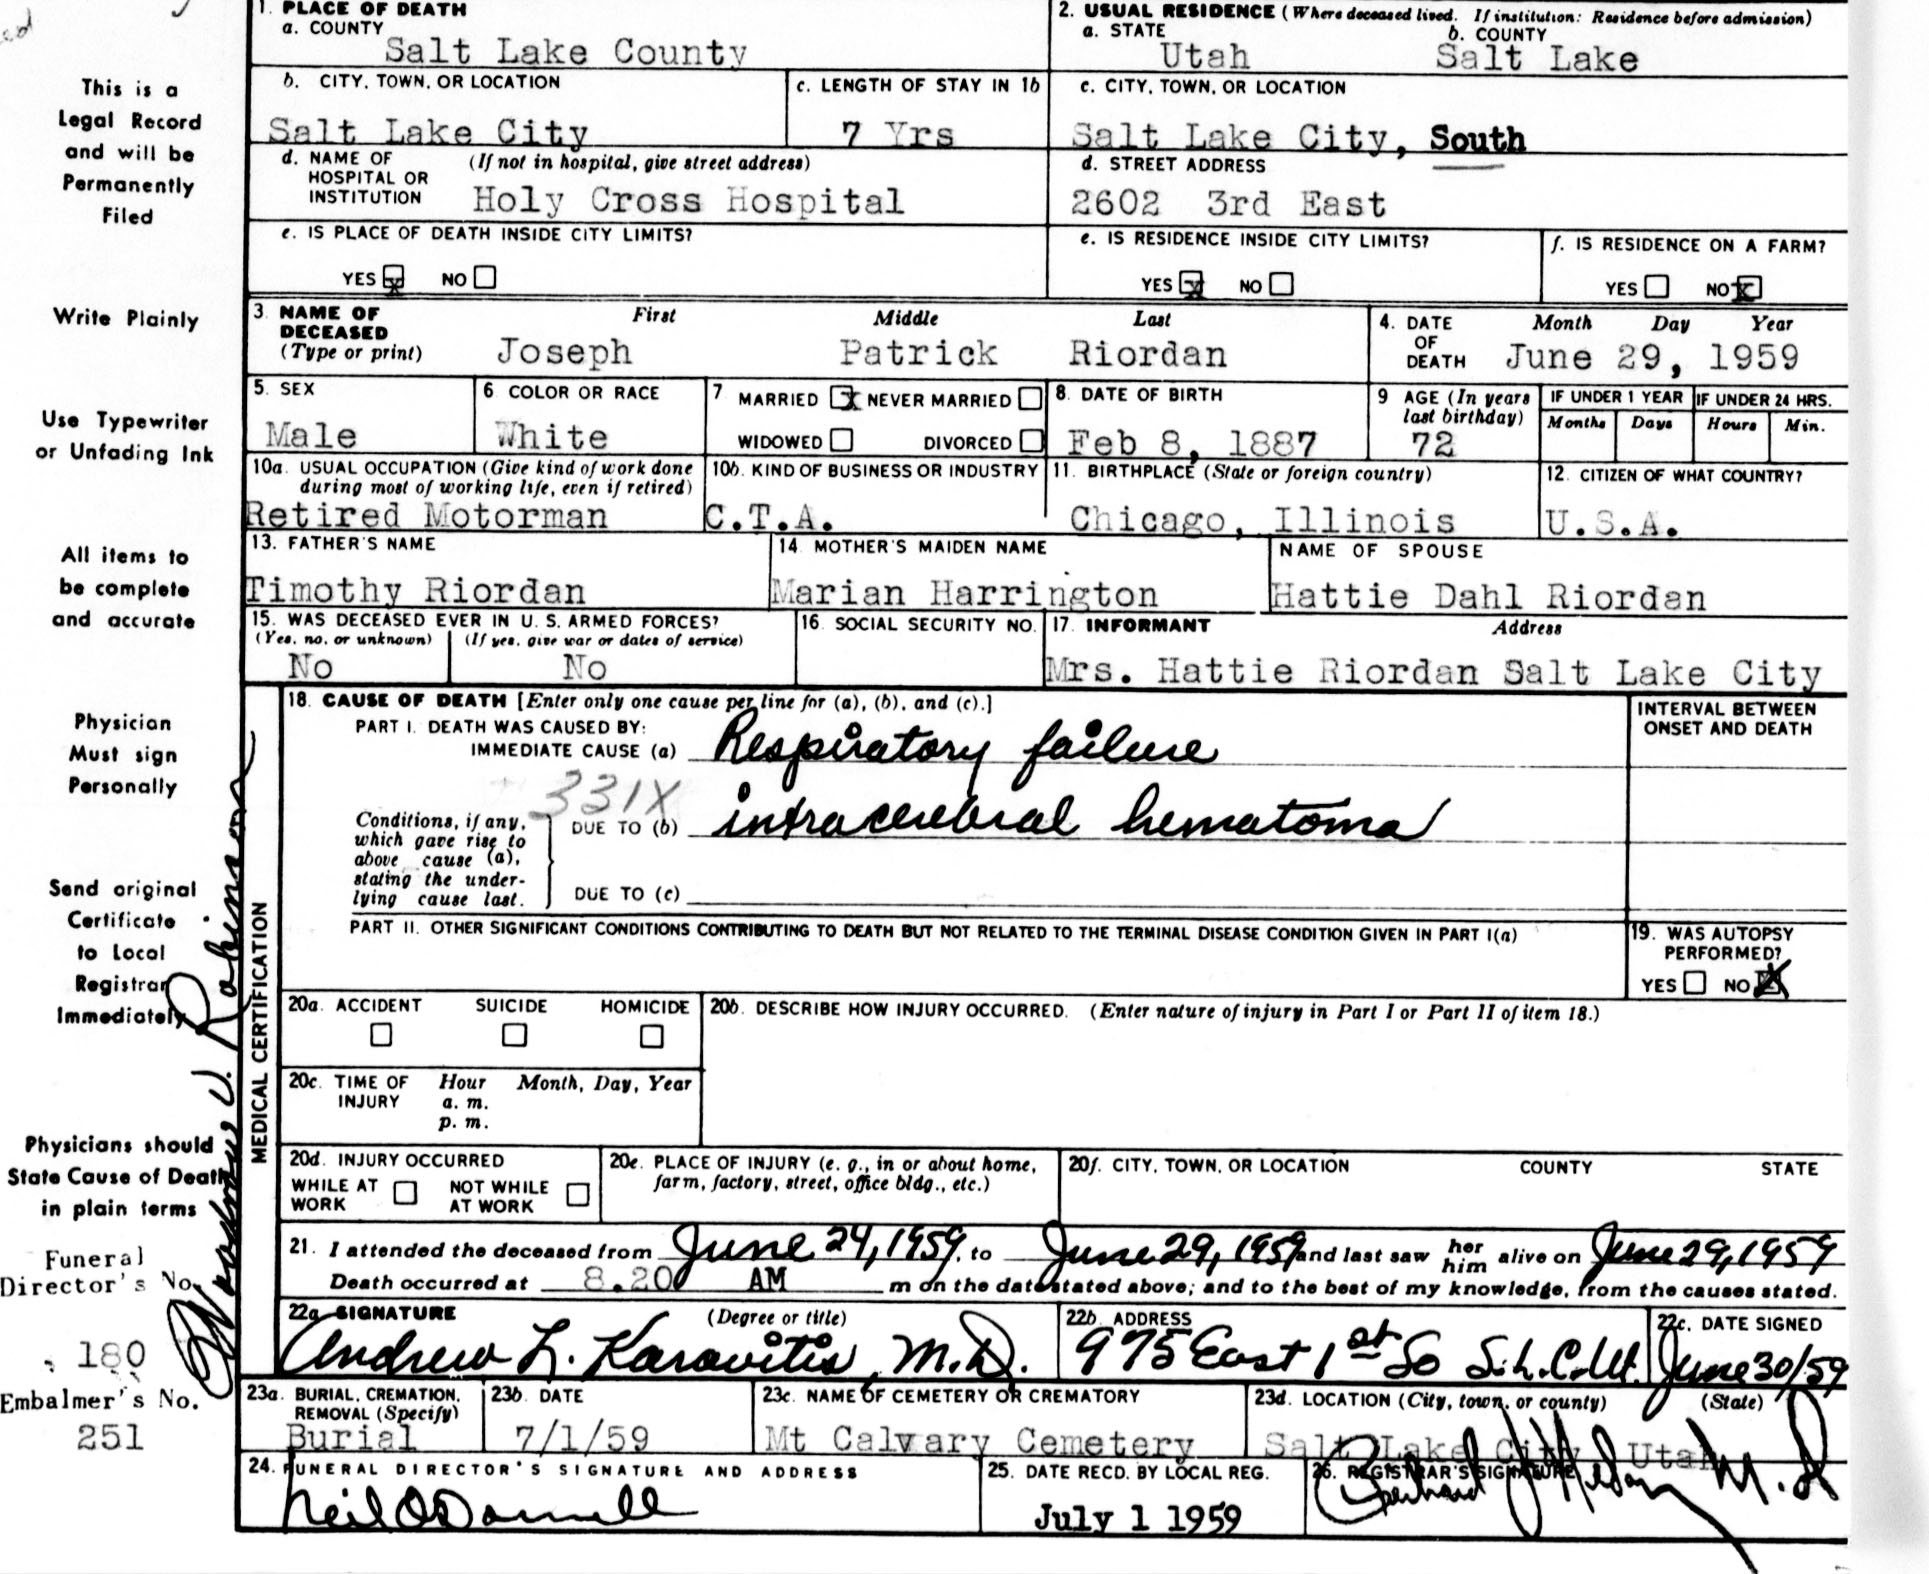 1. PLACE OF DEATH
a. COUNTY
Salt Lake County
2. USUAL RESIDENCE (Where deceased lived. If institution: Residence before admission)
a. STATE
Utah
b. COUNTY
Salt Lake
This is a
Legal Record
and will be
Permanently
Filed
b. CITY, TOWN, OR LOCATION
Salt Lake City
c. LENGTH OF STAY IN 1b
7 Yrs
c. CITY, TOWN, OR LOCATION
Salt Lake City, South
d. NAME OF HOSPITAL OR INSTITUTION
(If not in hospital, give street address)
Holy Cross Hospital
d. STREET ADDRESS
2602 3rd East
e. IS PLACE OF DEATH INSIDE CITY LIMITS?
YES x NO
e. IS RESIDENCE INSIDE CITY LIMITS?
YES x NO
f. IS RESIDENCE ON A FARM?
YES NO x
Write Plainly
3. NAME OF DECEASED
(Type or print)
First
Joseph
Middle
Patrick
Last
Riordan
4. DATE OF DEATH
Month Day Year
June 29, 1959
Use Typewriter
or Unfading Ink
5. SEX
Male
6 COLOR OR RACE
White
7 MARRIED x NEVER MARRIED
WIDOWED DIVORCED
8. DATE OF BIRTH
Feb 8, 1887
9 AGE (In years last birthday)
72
IF UNDER 1 YEAR
Months Days
IF UNDER 24 HRS.
Hours Min.
10a. USUAL OCCUPATION (Give kind of work done during most of working life, even if retired)
Retired Motorman
10b. KIND OF BUSINESS OR INDUSTRY
C.T.A.
11. BIRTHPLACE (State or foreign country)
Chicago, Illinois
12. CITIZEN OF WHAT COUNTRY?
U.S.A.
All items to
be complete
and accurate
13. FATHER'S NAME
Timothy Riordan
14. MOTHER'S MAIDEN NAME
Marian Harrington
NAME OF SPOUSE
Hattie Dahl Riordan
15. WAS DECEASED EVER IN U. S. ARMED FORCES?
(Yes, no, or unknown) (If yes, give war or dates of service)
No No
16. SOCIAL SECURITY NO.
17. INFORMANT Address
Mrs. Hattie Riordan Salt Lake City
Physician
Must sign
Personally
MEDICAL CERTIFICATION
18. CAUSE OF DEATH [Enter only one cause per line for (a), (b), and (c).]
PART I. DEATH WAS CAUSED BY:
IMMEDIATE CAUSE (a) Respiratory failure
331X
Conditions, if any, which gave rise to above cause (a), stating the underlying cause last.
DUE TO (b) intracerebral hematoma
DUE TO (c)
INTERVAL BETWEEN ONSET AND DEATH
Send original
Certificate
to Local
Registrar
Immediately
PART II. OTHER SIGNIFICANT CONDITIONS CONTRIBUTING TO DEATH BUT NOT RELATED TO THE TERMINAL DISEASE CONDITION GIVEN IN PART I(a)
19. WAS AUTOPSY PERFORMED?
YES NO X
20a. ACCIDENT SUICIDE HOMICIDE
20b. DESCRIBE HOW INJURY OCCURRED. (Enter nature of injury in Part I or Part II of item 18.)
20c. TIME OF INJURY
Hour Month, Day, Year
a. m.
p. m.
Physicians should
State Cause of Death
in plain terms
20d. INJURY OCCURRED
WHILE AT WORK NOT WHILE AT WORK
20e. PLACE OF INJURY (e. g., in or about home, farm, factory, street, office bldg., etc.)
20f. CITY, TOWN, OR LOCATION COUNTY STATE
21. I attended the deceased from June 24, 1959, to June 29, 1959 and last saw her him alive on June 29, 1959
Death occurred at 8.20 AM m on the date stated above; and to the best of my knowledge, from the causes stated.
Funeral
Director's No.
180
Embalmer's No.
251
J. Robinson
22a. SIGNATURE (Degree or title)
Andrew L. Karavitis, M.D.
22b. ADDRESS
975 East 1st So S.L.C. Ut.
22c. DATE SIGNED
June 30/59
23a. BURIAL, CREMATION, REMOVAL (Specify)
Burial
23b. DATE
7/1/59
23c. NAME OF CEMETERY OR CREMATORY
Mt Calvary Cemetery
23d. LOCATION (City, town, or county) (State)
Salt Lake City Utah
24. FUNERAL DIRECTOR'S SIGNATURE AND ADDRESS
Neil O'Donnell
25. DATE RECD. BY LOCAL REG.
July 1 1959
26. REGISTRAR'S SIGNATURE
M.D